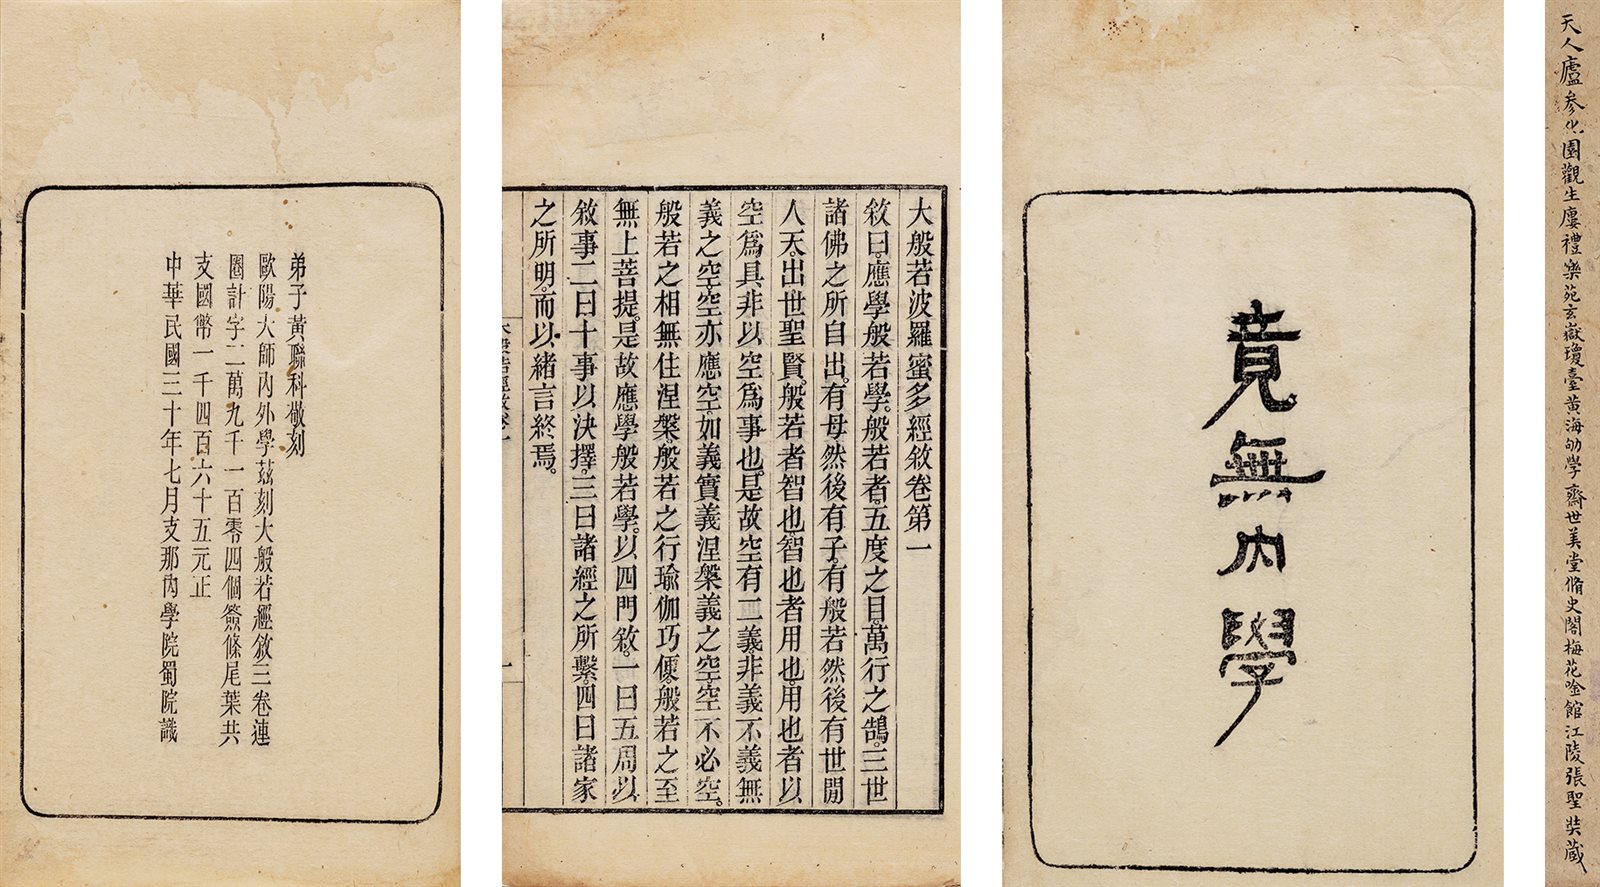 天人廬參化園觀生廔禮樂苑玄嶽瓊臺黄海劬學齋世美堂脩史閣梅花唫館江陵張聖奘藏
竟無內學
大般若波羅蜜多經敘卷第一
敘曰。應學般若學。般若者五度之目。萬行之鵠。三世
諸佛之所自出。有母然後有子。有般若然後有世閒
人天。出世聖賢。般若者智也。智也者用也。用也者以
空爲具。非以空爲事也。是故空有二義。非義不義無
義之空。空亦應空。如義實義涅槃義之空。空不必空。
般若之相無住涅槃。般若之行瑜伽巧便。般若之至
無上菩提。是故應學般若學。以四門敘。一曰五周以
敘事。二曰十事以決擇。三曰諸經之所繫。四曰諸家
之所明。而以緒言終焉。
大般若經敘卷一
一
弟子黃聯科敬刻
歐陽大師內外學茲刻大般若經敘三卷連
圈計字二萬九千一百零四個簽條尾葉共
支國幣一千四百六十五元正
中華民國三十年七月支那內學院蜀院識